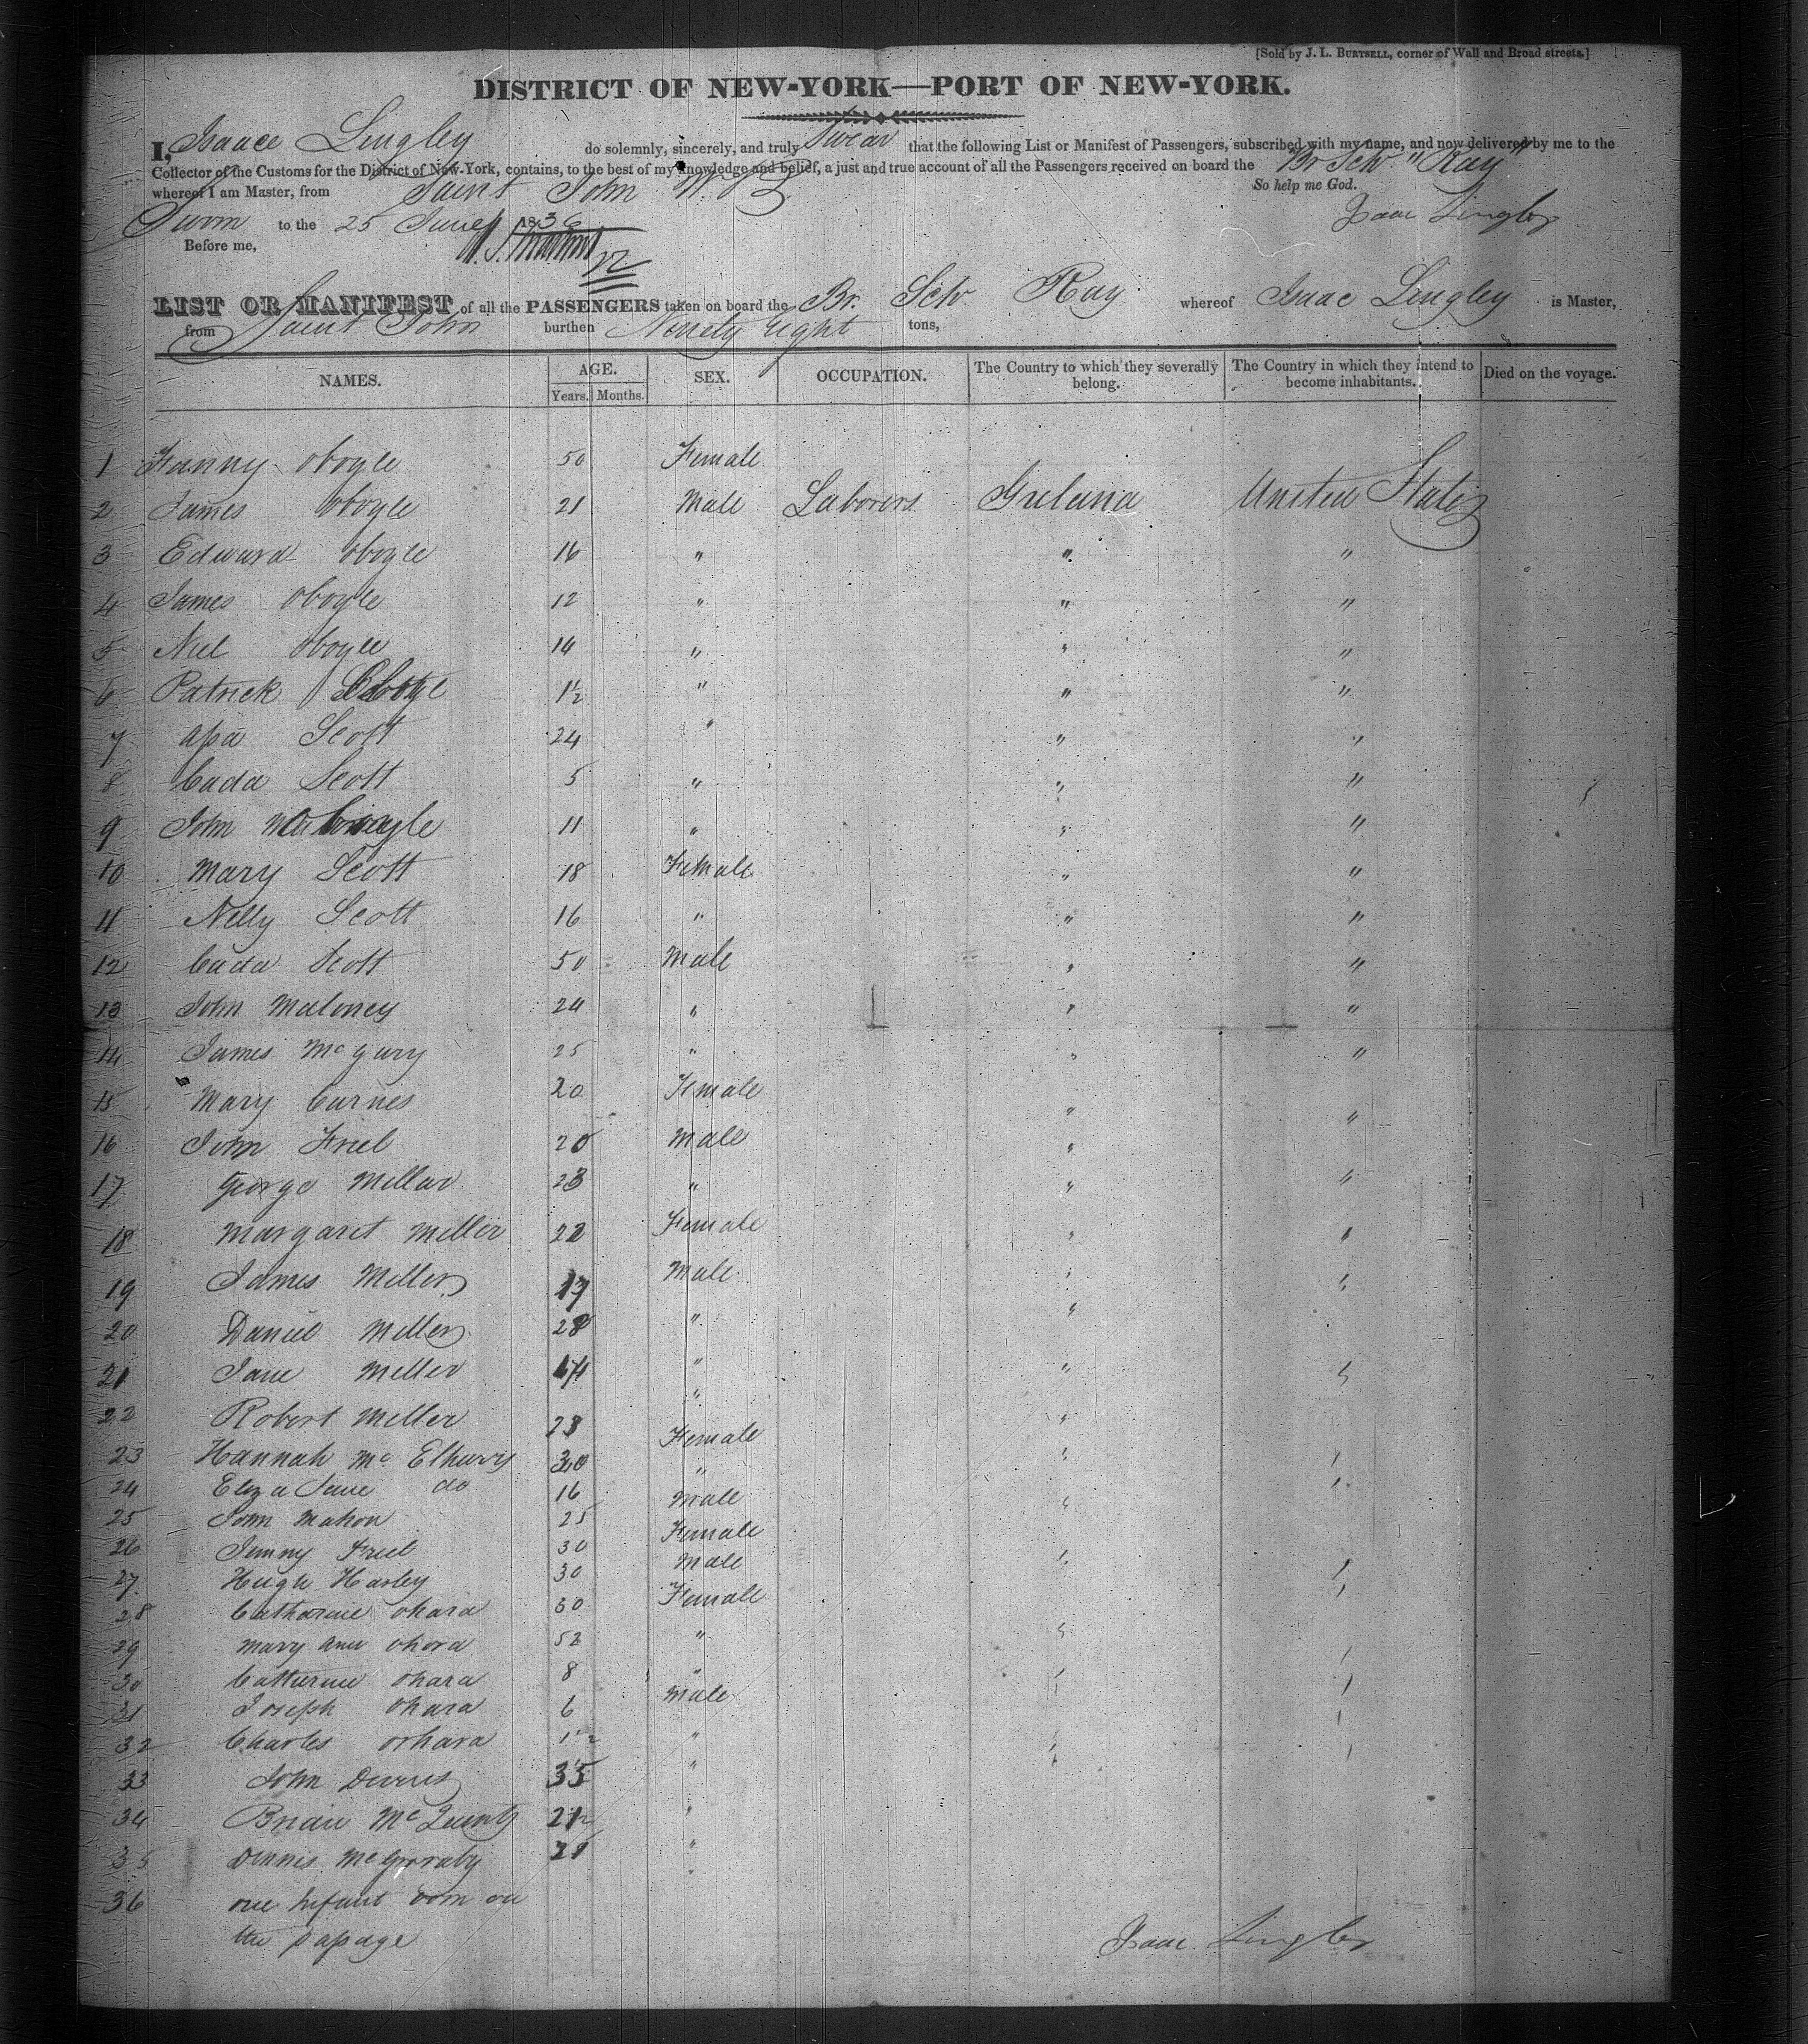 [Sold by J. L. BURTSELL, corner of Wall and Broad streets.]
DISTRICT OF NEW-YORK—PORT OF NEW-YORK.
I, Isaace Lingley do solemnly, sincerely, and truly Swear that the following List or Manifest of Passengers, subscribed with my name, and now delivered by me to the
Collector of the Customs for the District of New-York, contains, to the best of my knowledge and belief, a just and true account of all the Passengers received on board the Br Schr "Ray"
whereof I am Master, from Saint John N. B. So help me God.
Sworn to the 25 June 1836 Isaac Lingley
Before me,
LIST OR MANIFEST of all the PASSENGERS taken on board the Br. Schr Ray whereof Isaac Lingley is Master,
from Saint John burthen Ninety Eight tons,
NAMES. AGE. Years. Months. SEX. OCCUPATION. The Country to which they severally belong. The Country in which they intend to become inhabitants. Died on the voyage.
1 Fanny oboyle 50 Female
2 James oboyle 21 Male Laborers Ireland United States
3 Edward oboyle 16 " " "
4 James oboyle 12 " " "
5 Niel oboyle 14 " " "
6 Patrick 1½ " " "
7 Scott 24 " " "
8 Cada Scott 5 " " "
9 John 11 " " "
10 Mary Scott 18 Female " "
11 Nelly Scott 16 " " "
12 Cada Scott 50 Male " "
13 John Maloney 24 " " "
14 James McGary 25 " " "
15 Mary Carnes 20 Female " "
16 John Friel 20 Male "
17 George Millar 23 " " "
18 Margaret Miller 22 Female " "
19 James Miller 17 Male " "
20 Daniel Miller 28 " "
21 Jane Miller " " "
22 Robert Miller 23 " "
23 Hannah Mc 30 Female " "
24 Eliza Jane do 16 " "
25 John Mahon 25 Male "
26 Jenny Friel 30 Female
27 Hugh Harley 30 Male " "
28 Catharine ohara 30 Female "
29 Mary Ann ohora 52 " "
30 Catherine ohara 8 " " "
31 Joseph ohara 6 Male " "
32 Charles orhara 1½ " "
33 John 35 " " "
34 Brian Mc 21 "
35 Dennis 21 "
36 one Infant born on
the passage
Isaac Lingley